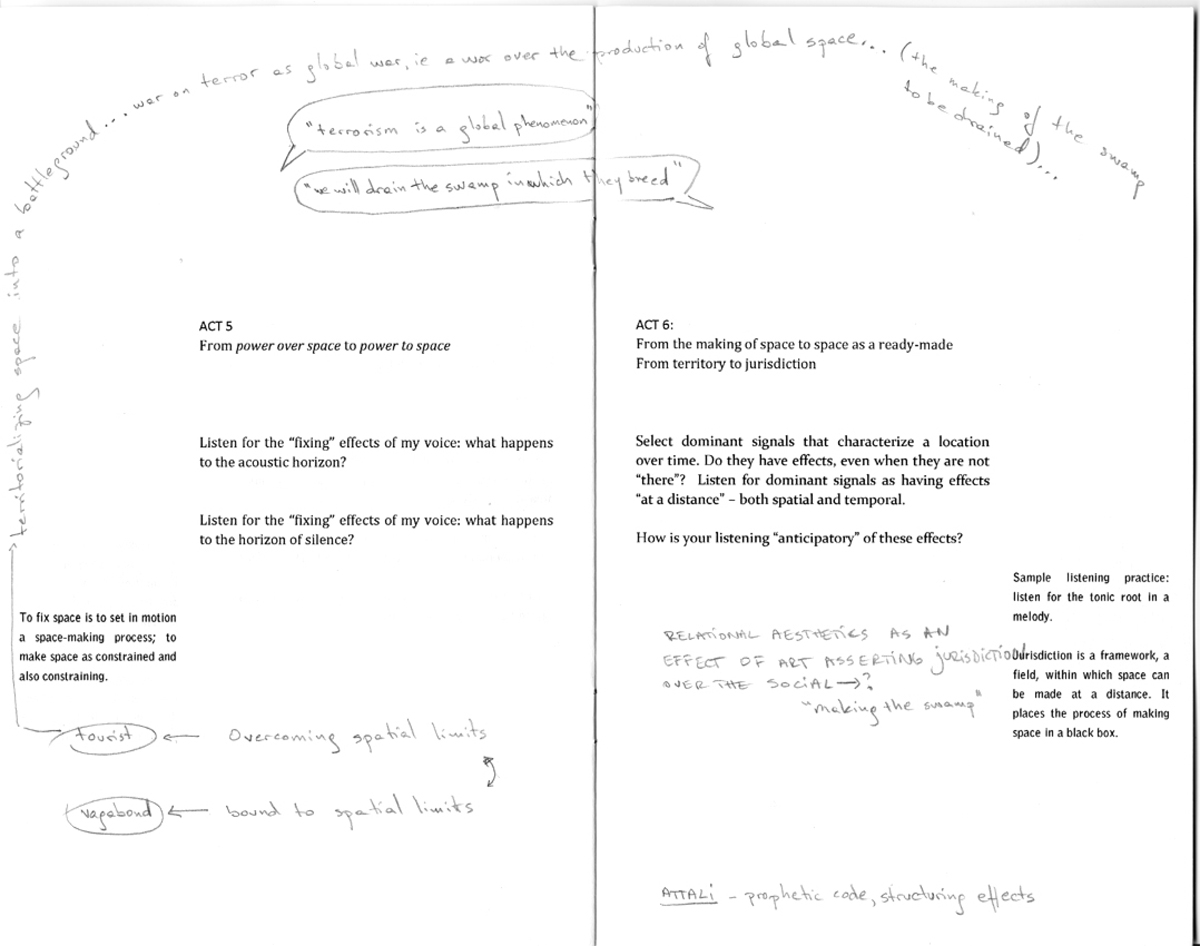 territorializing space into a battleground... war on terror as global war, ie a war over the production of global space... (the making of the swamp
to be drained)...
"terrorism is a global phenomenon"
"we will drain the swamp in which they breed"
ACT 5
From power over space to power to space
Listen for the “fixing” effects of my voice: what happens
to the acoustic horizon?
Listen for the “fixing” effects of my voice: what happens
to the horizon of silence?
To fix space is to set in motion
a space-making process; to
make space as constrained and
also constraining.
tourist ← Overcoming spatial limits
vagabond ← bound to spatial limits
ACT 6:
From the making of space to space as a ready-made
From territory to jurisdiction
Select dominant signals that characterize a location
over time. Do they have effects, even when they are not
“there”? Listen for dominant signals as having effects
“at a distance” – both spatial and temporal.
How is your listening “anticipatory” of these effects?
Sample listening practice:
listen for the tonic root in a
melody.
Jurisdiction is a framework, a
field, within which space can
be made at a distance. It
places the process of making
space in a black box.
RELATIONAL AESTHETICS AS AN
EFFECT OF ART ASSERTING jurisdiction
OVER THE SOCIAL →?
"making the swamp"
ATTALI - prophetic code, structuring effects